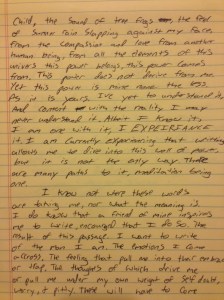 Child, the sound of tree frogs, the feel
of summer rain slapping against my face,
from the compassion and love from another
human being, from all the elements of this
universe this power belongs, this power comes
from. This power does not derive from me.
Yet this power is more now the
is in years. I've yet to understand it,
And cannot the reality I may
never understand it. Albeit I know it,
I am one with it, I EXPERIENCE
it. I am currently experiencing the
allows me to dive into this of peace.
but it is not the only way. There
are many paths to it, meditation being
one.
I know not where these words
are taking me, nor what the meaning is.
I do know that a friend of mine inspires
me to write, encouraged that I do so. The
of this passed. I want to write
of the man I am. The emotions I come
across. The feeling that pull me into their
or . The thoughts of which drive me
or pull me under my own weight of self doubt,
worry, pity. There will have to come